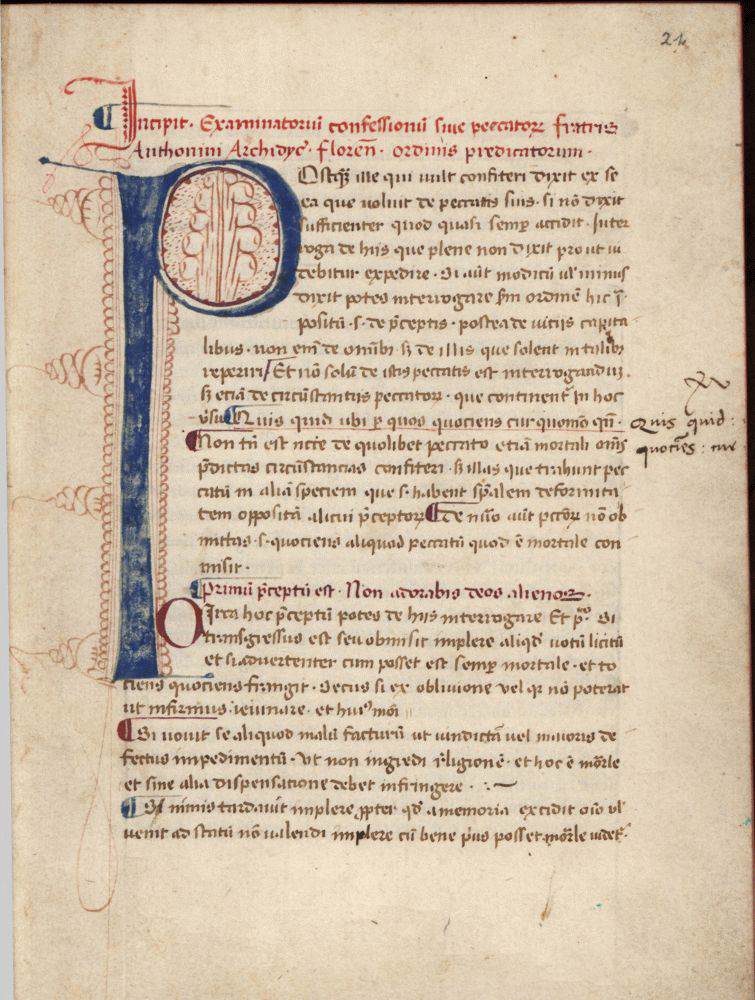 24
Incipit. Examinatoriū confessionū siue peccatoꝝ fratris
Anthonini Archidyc̄. floren̄. ordinis predicatorum.
POstqȝ ille qui uult confiteri dixit ex se
ea que uoluit de peccatis suis. si nō dixit
sufficienter quod quasi semp̱ accidit. Inter
roga de hiis que plene non dixit pro ut ui
debitur expedire. Si aūt modicū ul̄ minus
dixit potes interrogare scd̄m ordinē hic ī
positū .s. de p̄ceptis. postea de uiciis capita
libus. non em̄ de omnibꝫ sꝫ de illis que solent in talibꝫ
reperiri / Et nō solū de istis peccatis est interrogandū.
sꝫ eciā de circūstantiis peccatoꝝ. que continent̄ in hoc
v̄su Quis quid ubi p̱ quos quociens cur quomō qn̄.
Quis quid :
quoties : cur
Non tn̄ est ncc̄e de quolibet peccato etiā mortali om̄s
p̄dictas circūstancias confiteri. sꝫ illas que trahunt pec
catū in aliā speciem que .s. habent sp̄alem deformita
tem oppositā alicui p̄ceptoꝝ De nūo aūt pccōꝝ nō ob
mittas .s. quociens aliquod peccatū quod ē mortale con
misit.
Primū p̄ceptū est. Non adorabis deos alienos.
Circa hoc p̄ceptū potes de hiis interrogare Et pº. Si
transgressus est seu obmisit implere aliqd̄ uotū licitū
et si aduertenter cum posset est semp̱ mortale. et to
ciens quociens frangit. Secus si ex obliuione vel qr nō poterat
ut infirmus. ieiunare. et huiꝰmōi
Si uouit se aliquod malū facturū ut uindictā uel maioris de
fectus impedimentū. Vt non ingredi religionē. et hoc ē mōrle
et sine alia dispensatione debet infringere.
Si nimis tardauit implere ꝓpter qd̄ a memoria excidit oīo ul̄
venit ad statū nō ualendi implere cū bene p̱us posset. mōrle uidet̄.